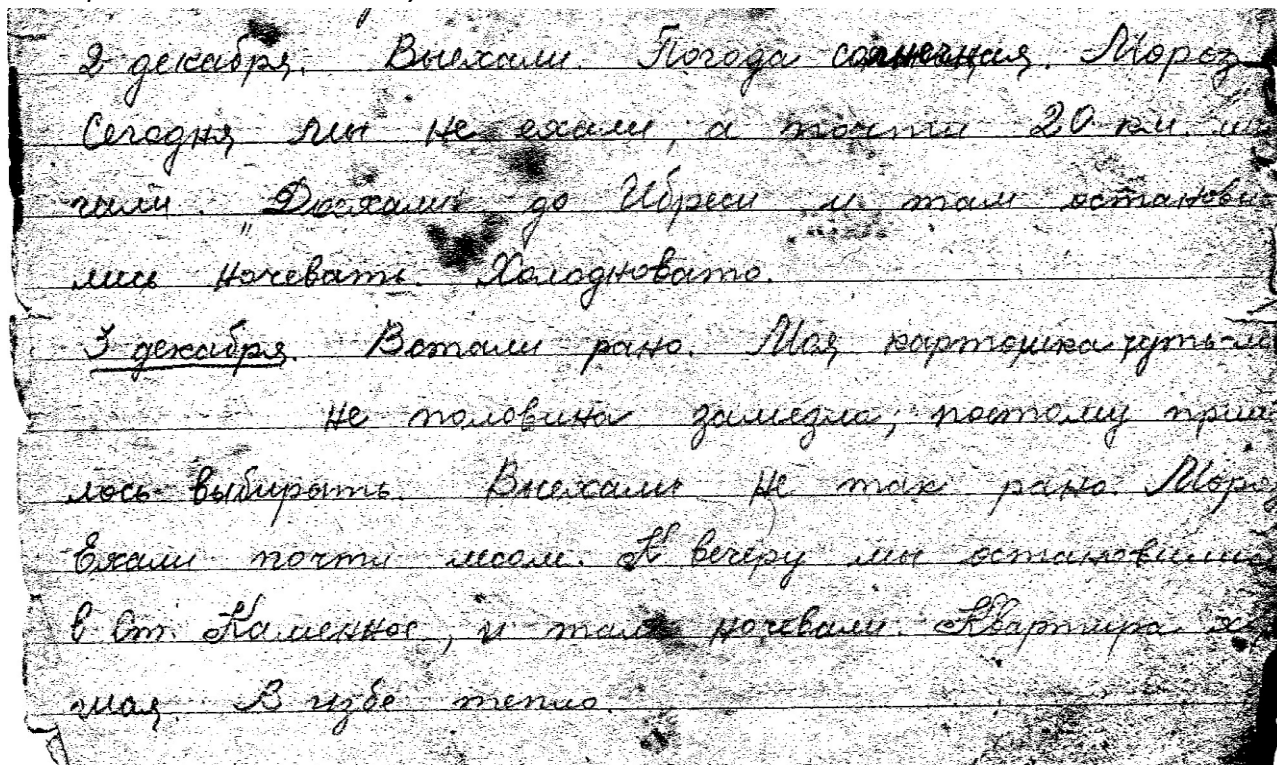 2 декабря. Выехали. Погода солнечная. Мороз
Сегодня мы не ехали, а почти 20 км. ша
гали. "Доехали до Ибреси и там останови
лись ночевать. Холодновато.
3 декабря. Встали рано. Моя картошка чуть-ли
не половина замерзла, поэтому приш
лось выбирать. Выехали не так рано. Мороз
Ехали почти лесом. К вечеру мы остановились
в Ст. Каменное, и там ночевали. Квартира
В избе тепло.